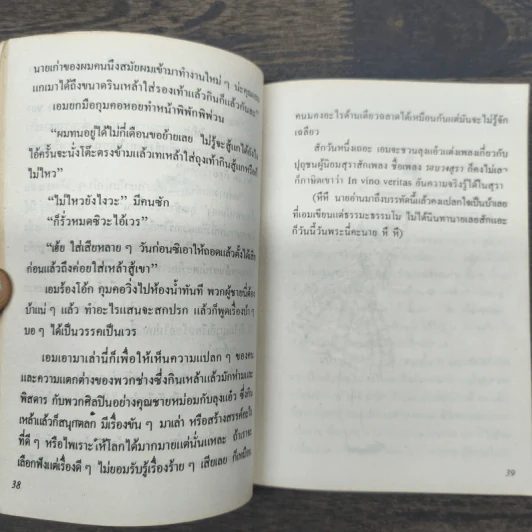 นายเก่าของผมคนนึงสมัยผมเข้ามาทำงานใหม่ ๆ น่ะคุณเอย
แกเมาได้ถึงขนาดรินเหล้าใส่รองเท้าแล้วกินก็แล้วกันเฮอะ"
เอมยกมือกุมคอหอยทำหน้าพิพักพิพ่วน
"ผมทนอยู่ได้ไม่กี่เดือนขอย้ายเลย ไม่รู้จะสู้แกได้ยังไง
ไอ้ครั้นจะนั่งโต๊ะตรงข้ามแล้วเทเหล้าใส่ถุงเท้ากินสู้แกหรือก็
ไม่ไหว"
"ไม่ไหวยังไงวะ" มีคนซัก
"ก็รั่วหมดซิวะไอ้เวร"
"เฮ้ย ใส่เสียหลาย ๆ วันก่อนซิเอาให้ถอดแล้วตั้งได้
ก่อนแล้วถึงค่อยใส่เหล้าสู้เขา"
เอมร้องโอ้ก กุมคอวิ่งไปห้องน้ำทันที พวกผู้ชายนี่ต้อง
บ้าแน่ ๆ แล้ว ทำอะไรแสนจะสกปรก แล้วก็พูดเรื่องบ้า ๆ
บอ ๆ ได้เป็นวรรคเป็นเวร
เอมเอามาเล่านี่ก็เพื่อให้เห็นความแปลก ๆ ของคน
และความแตกต่างของพวกช่างซึ่งกินเหล้าแล้วมักห่ามและ
พิสดาร กับพวกศิลปินอย่างคุณชายหม่อมกับลุงแอ้ว ซึ่งกิน
เหล้าแล้วก็สนุกตลก มีเรื่องขัน ๆ มาเล่า หรือสร้างสรรค์อะไร
ที่ดี ๆ หรือไพเราะให้โลกได้มากมายแต่นั่นแหละ ถ้าเราจะ
เลือกฟังแต่เรื่องดี ๆ ไม่ยอมรับรู้เรื่องร้าย ๆ เสียเลย ก็เหมือน
38
คนมองอะไรด้านเดียวฉลาดได้เหมือนกันแต่มันจะไม่รู้จัก
เฉลียว
สักวันหนึ่งเถอะ เอมจะชวนลุงแอ้วแต่งเพลงเกี่ยวกับ
ปุถุชนผู้นิยมสุราสักเพลง ชื่อเพลง รอบวงสุรา ก็คงไม่เลว
ก็ภาษิตเขาว่า In vino veritas ก้นความจริงรู้ได้ในสุรา
(หึหึ นายอ่านมาถึงบรรทัดนี้แล้วคงแปลกใจเป็นบ้าเลย
ที่เอมเขียนแต่ธรรมะธรรมโม ไม่ได้นินทานายเลยสักแอะ
ก็วันนี้วันพระนี่คะนาย หึ หึ)
39